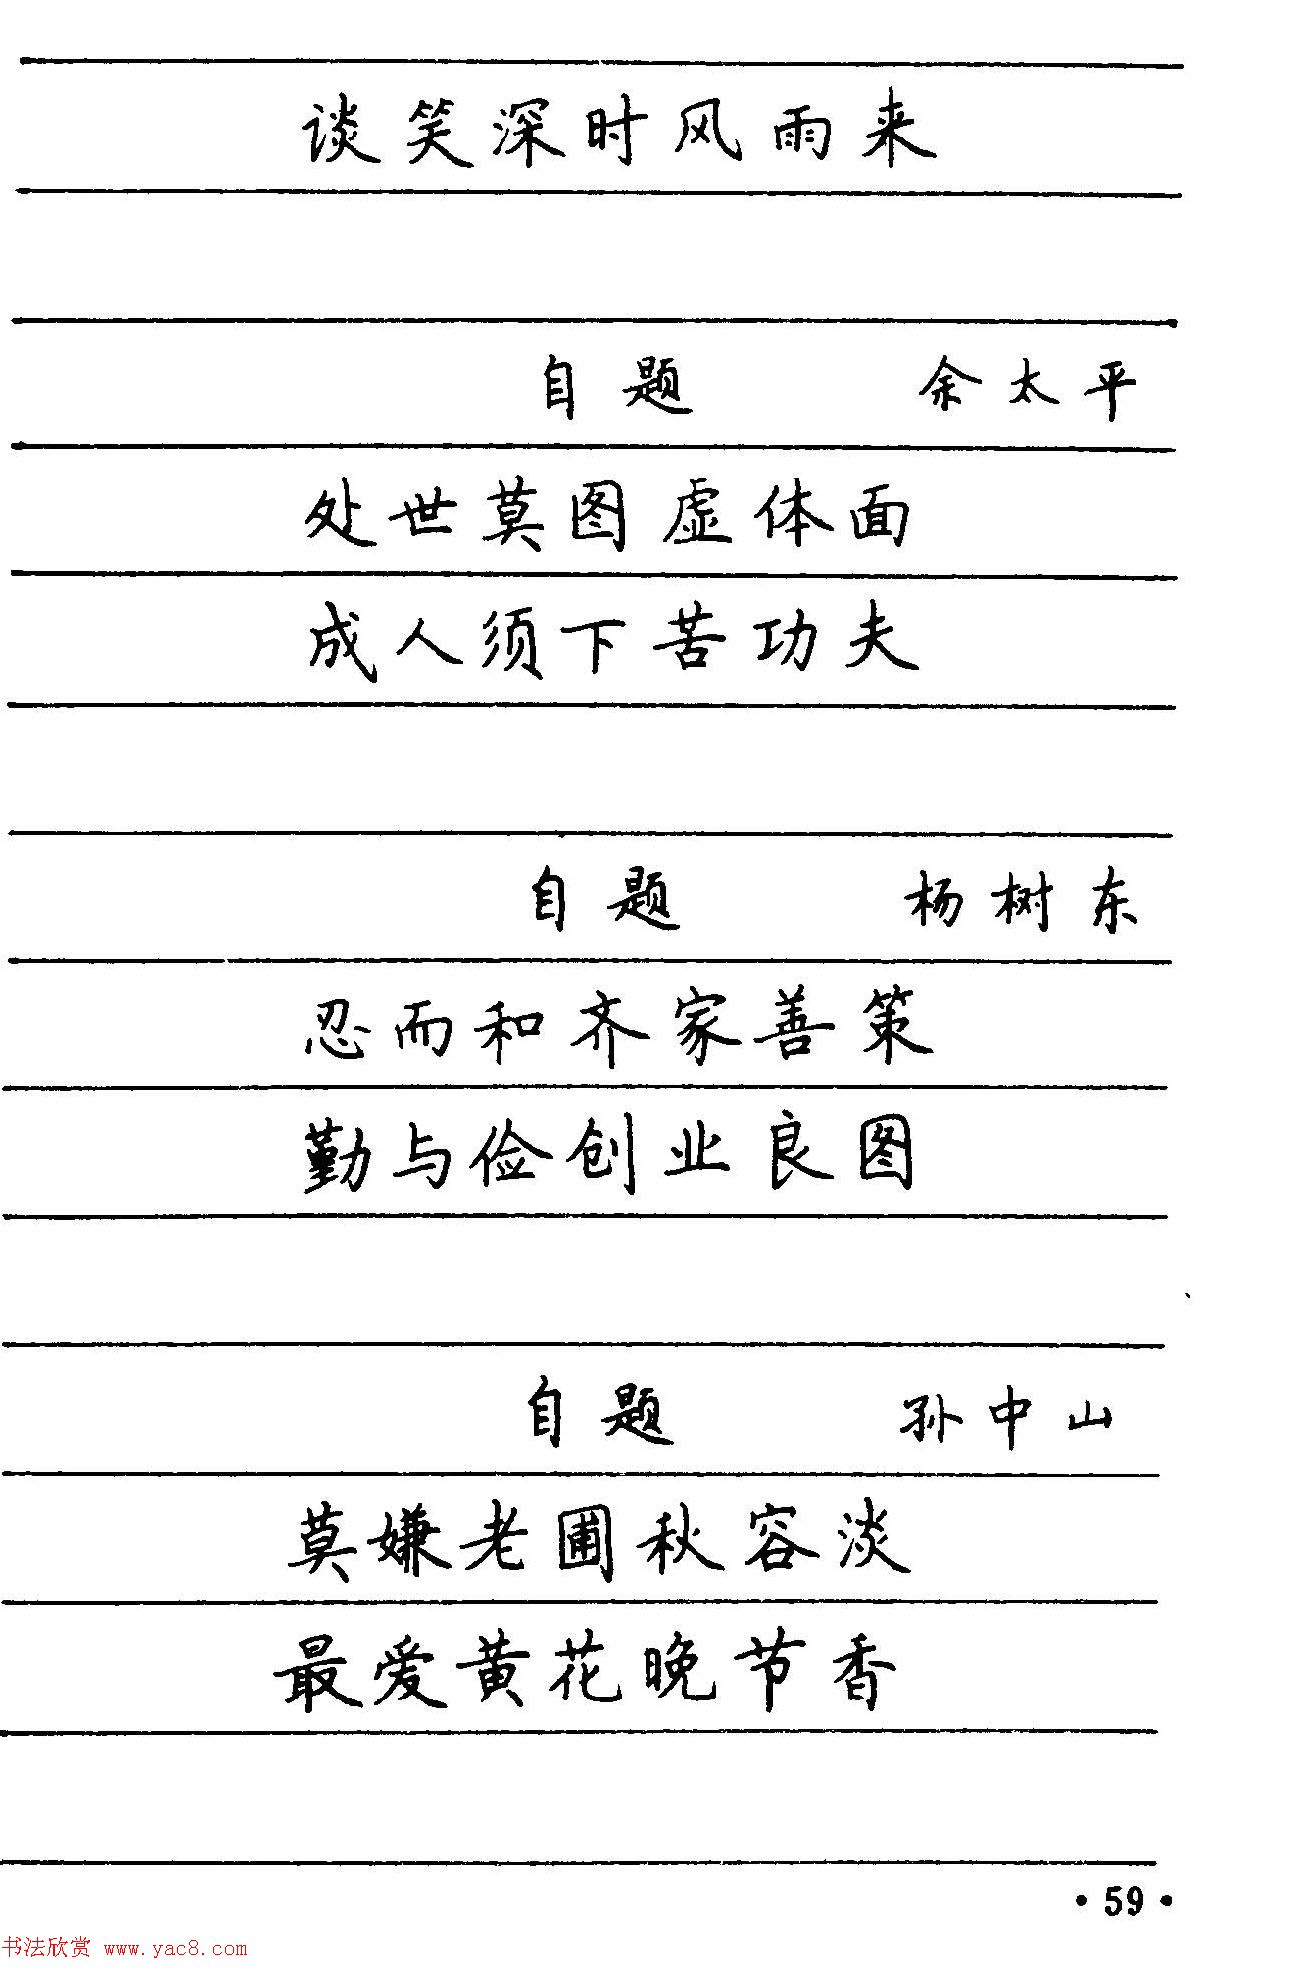 谈笑深时风雨来
自题 余太平
处世莫图虚体面
成人须下苦功夫
自题 杨树东
忍而和齐家善策
勤与俭创业良图
自题 孙中山
莫嫌老圃秋容淡
最爱黄花晚节香
·59·
书法欣赏 www.yac8.com